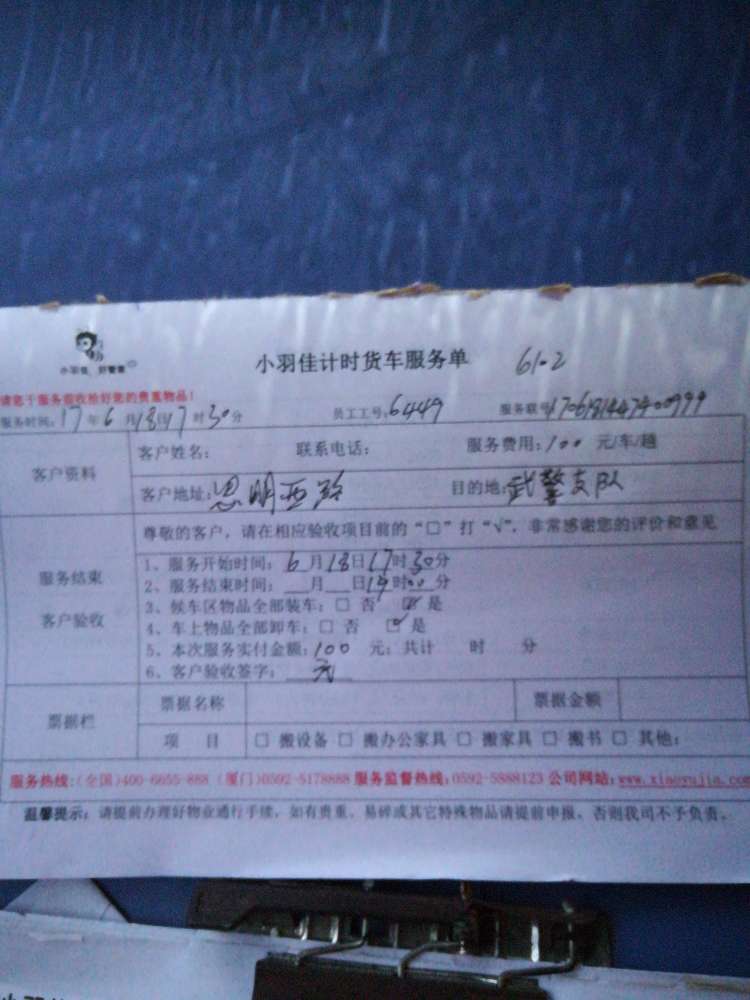 小羽佳 好管家
小羽佳计时货车服务单 61-2
请您于服务前收拾好您的贵重物品!
服务时间:17年6月18日17时30分 员工工号:6449 服务联号:
客户资料
客户姓名: 联系电话: 服务费用:100 元/车/趟
客户地址:思明西路 目的地:武警支队
服务结束
客户验收
尊敬的客户,请在相应验收项目前的“□”打“√”,非常感谢您的评价和意见
1、服务开始时间:6月18日17时30分
2、服务结束时间:__月__日19时00分
3、候车区物品全部装车:□ 否 ☑ 是
4、车上物品全部卸车:□ 否 ☑ 是
5、本次服务实付金额:100 元;共计 时 分
6、客户验收签字:
票据栏
票据名称 票据金额
项 目 □ 搬设备 □ 搬办公家具 □ 搬家具 □ 搬书 □ 其他:
服务热线:(全国)400-6655-888 (厦门)0592-5178888 服务监督热线:0592-5888123 公司网站:www.xiaoyujia.com
温馨提示:请提前办理好物业通行手续,如有贵重、易碎或其它特殊物品请提前申报,否则我司不予负责。